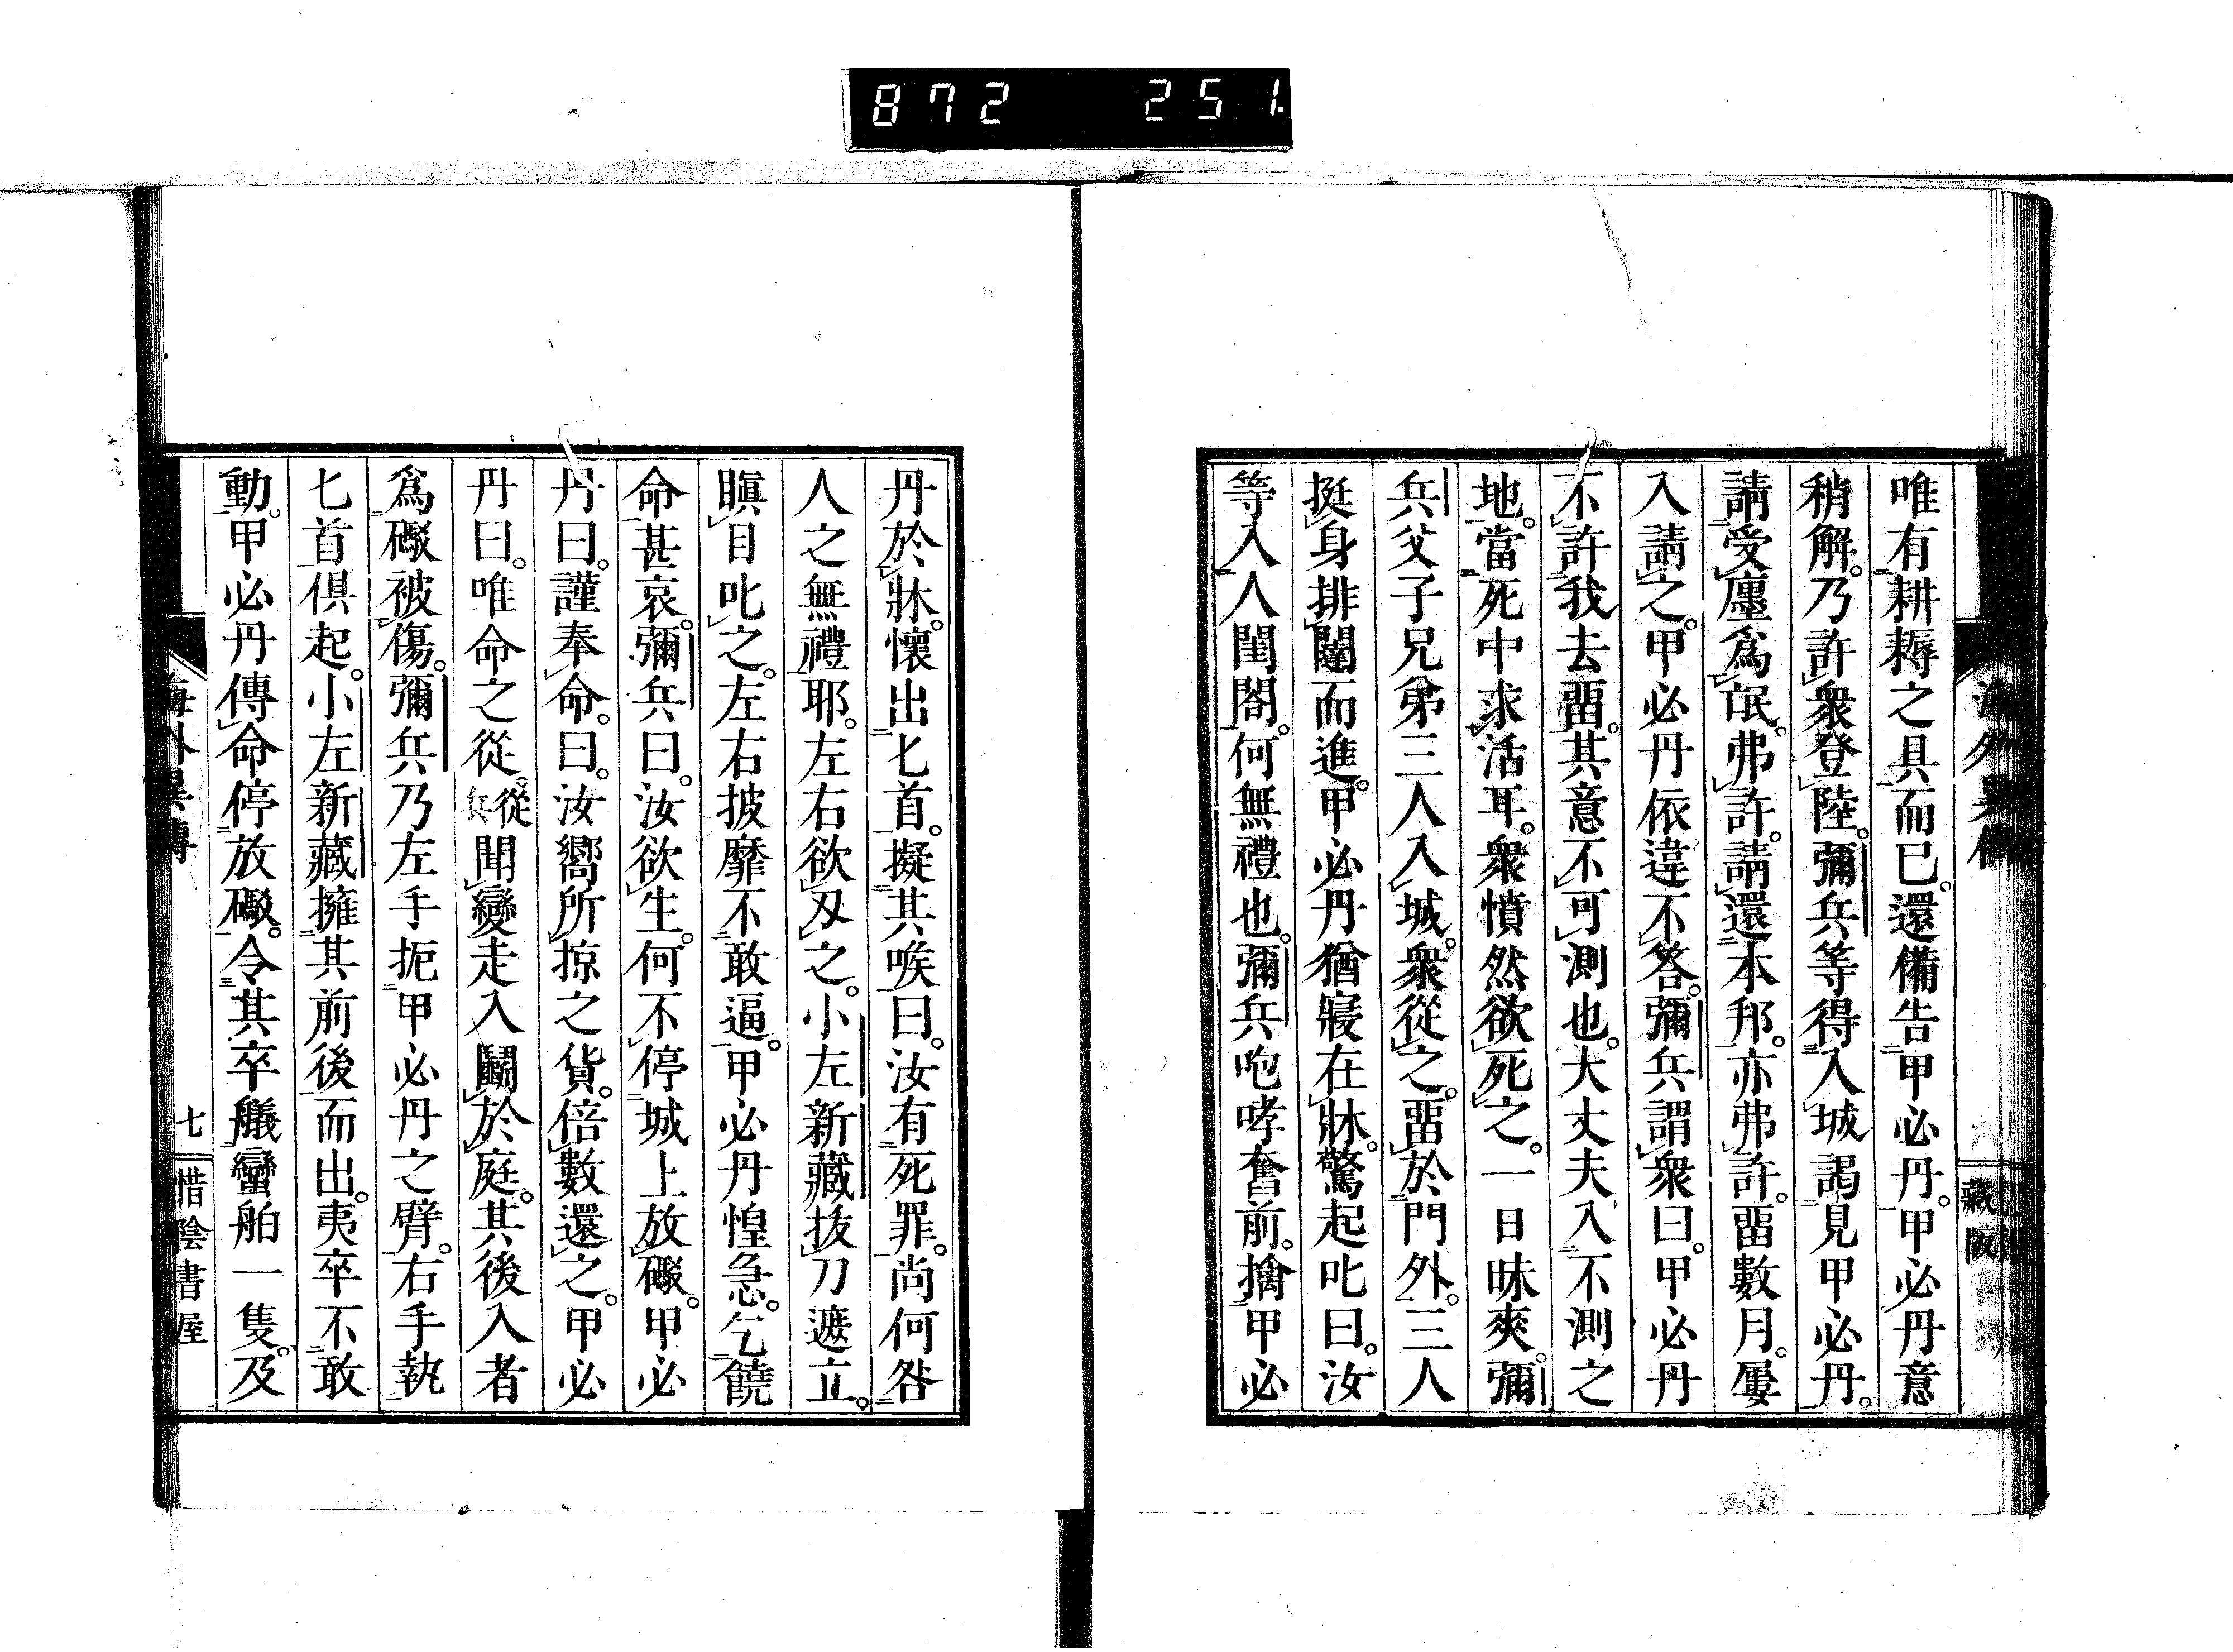 872 251
唯有耕耨之具而已。還備告甲必丹。甲必丹意
稍解。乃許衆登陸。彌兵等得入城謁見甲必丹。
請受廛爲氓。弗許。請還本邦。亦弗許。畱數月。屢
入請之。甲必丹依違不答。彌兵謂衆曰。甲必丹
不許我去畱。其意不可測也。大丈夫入不測之
地。當死中求活耳。衆憤然欲死之。一日昧爽。彌
兵父子兄弟三人入城。衆從之。畱於門外。三人
挺身排闥而進。甲必丹猶寢在牀。驚起叱曰。汝
等入人閨閤。何無禮也。彌兵咆哮奮前。擒甲必
丹於牀。懷出匕首。擬其喉曰。汝有死罪。尚何咎
人之無禮耶。左右欲刄之。小左新藏拔刀遮立。
瞋目叱之。左右披靡不敢逼。甲必丹惶急。乞饒
命甚哀。彌兵曰。汝欲生。何不停城上放礟。甲必
丹曰。謹奉命。曰。汝嚮所掠之貨。倍數還之。甲必
丹曰。唯命之從。從兵聞變走入鬭於庭。其後入者
爲礟被傷。彌兵乃左手扼甲必丹之臂。右手執
匕首俱起。小左新藏擁其前後而出。夷卒不敢
動。甲必丹傳命停放礟。令其卒艤蠻舶一隻。及
海外異傳
七
惜陰書屋
藏板